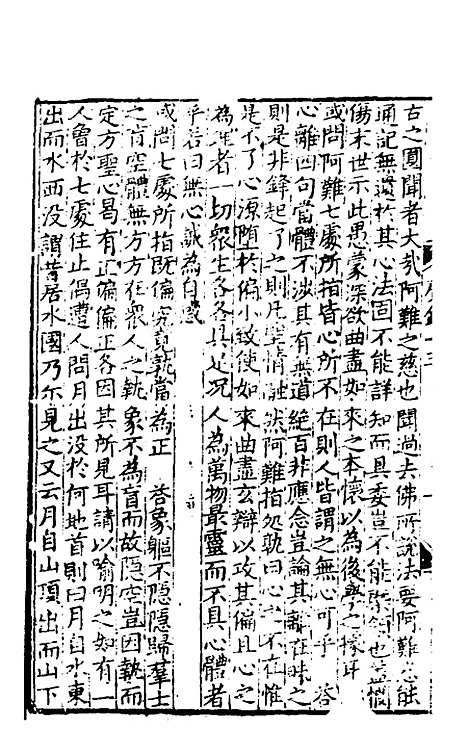 古之圓聞者大哉阿難之慈也聞過去佛所說法要阿難悉能
通記無遺於其心法固不能詳知而具委豈不能緊領也蓋慨
傷末世示此愚蒙深欲曲盡如來之本懷以為後學之據耳
或問阿難七處所指皆心所不在則人皆謂之無心可乎 答
心離四句當體不涉其有無道絕百非應念豈論其離在昧之
則是非鋒起了之則凡聖情融然阿難指処執曰心之不在惟
是不了心源墮於偏小致使如來曲盡玄辯以攻其偏且心之
為理者一切衆生各各具足況人為萬物最靈而不具心體者
乎若曰無心誠為自惑
或問七處所指既偏究竟執當為正 答象軀不隱隱歸羣士
之盲空體無方方在衆人之執象不為盲而故隱空豈因執而
定方聖心曷有正偏偏正各因其所見耳請以喻明之如有一
人魯於七處住止偶遭人問月出没於何地首則曰月自水東
出而水西没謂昔居水國乃尒見之又云月自山頂出而山下